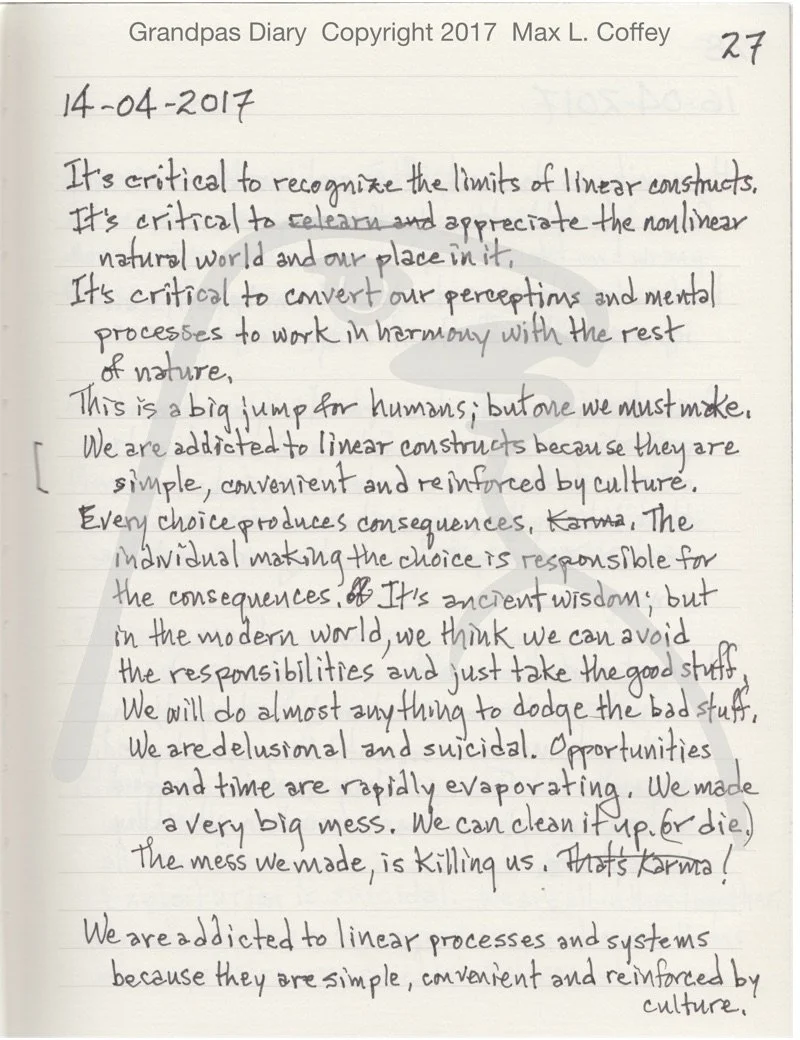 Grandpas Diary Copyright 2017 Max L. Coffey
27
14-04-2017
It's critical to recognize the limits of linear constructs.
It's critical to relearn and appreciate the nonlinear
natural world and our place in it.
It's critical to convert our perceptions and mental
processes to work in harmony with the rest
of nature.
This is a big jump for humans; but one we must make.
We are addicted to linear constructs because they are
simple, convenient and reinforced by culture.
Every choice produces consequences. Karma. The
individual making the choice is responsible for
the consequences. It's ancient wisdom; but
in the modern world, we think we can avoid
the responsibilities and just take the good stuff.
We will do almost anything to dodge the bad stuff.
We are delusional and suicidal. Opportunities
and time are rapidly evaporating. We made
a very big mess. We can clean it up. (or die.)
The mess we made, is killing us. That's Karma!
We are addicted to linear processes and systems
because they are simple, convenient and reinforced by
culture.